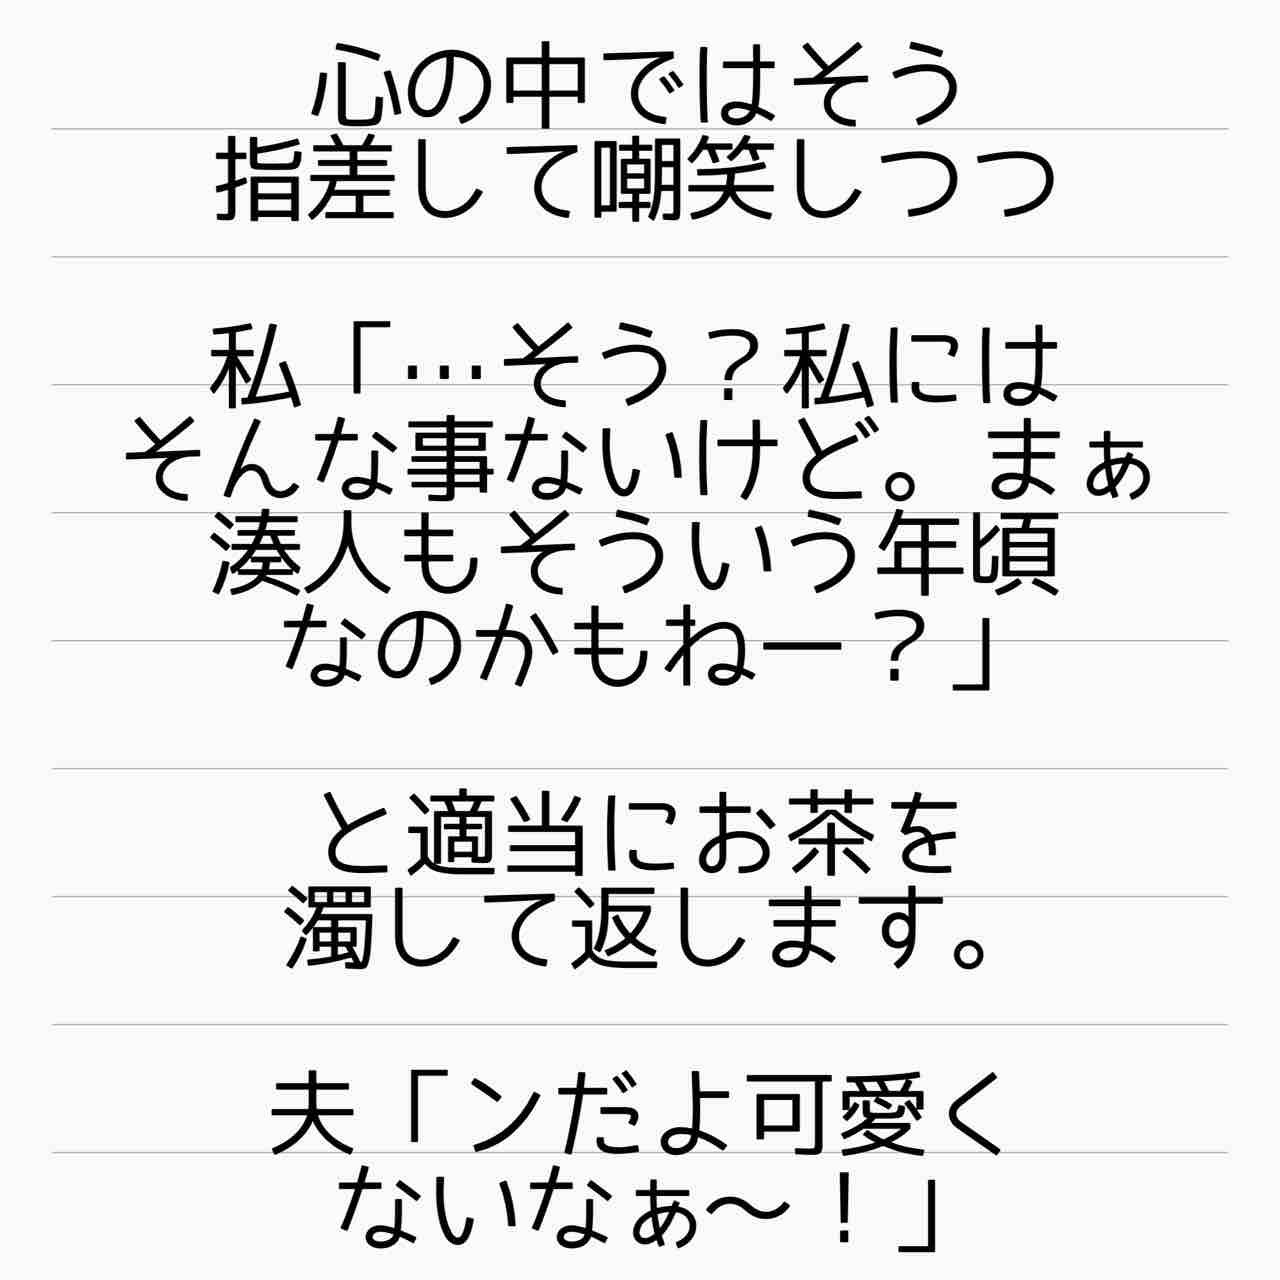 心の中ではそう
指差して嘲笑しつつ
私「…そう？私には
そんな事ないけど。まぁ
湊人もそういう年頃
なのかもねー？」
と適当にお茶を
濁して返します。
夫「ンだよ可愛く
ないなぁ〜！」